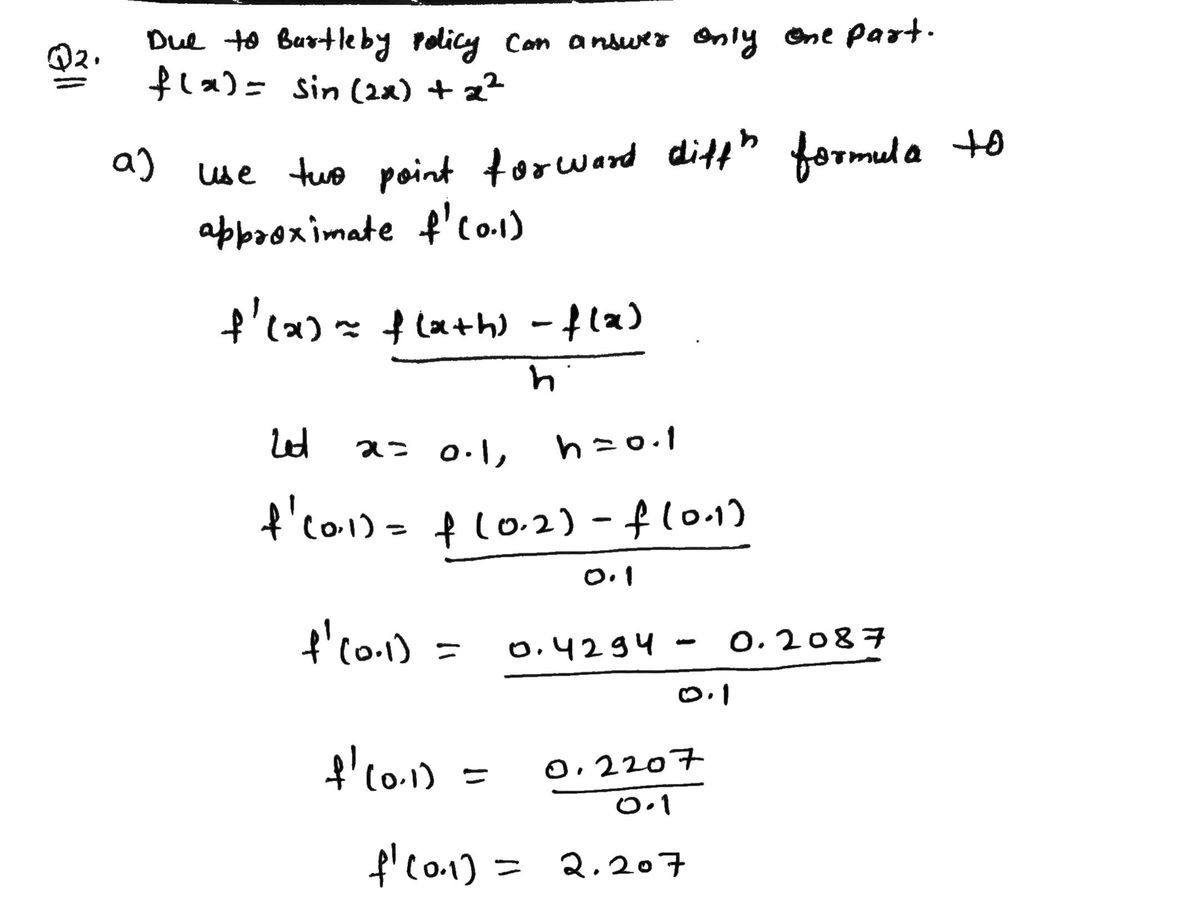 Q2. Due to Bartleby Policy Can answer only one part.
f(x) = sin(2x) + x²
a) use two point forward diffⁿ formula to
approximate f'(0.1)
f'(x) ≈ f(x+h) - f(x)
h
Let x = 0.1, h = 0.1
f'(0.1) = f(0.2) - f(0.1)
0.1
f'(0.1) = 0.4294 - 0.2087
0.1
f'(0.1) = 0.2207
0.1
f'(0.1) = 2.207